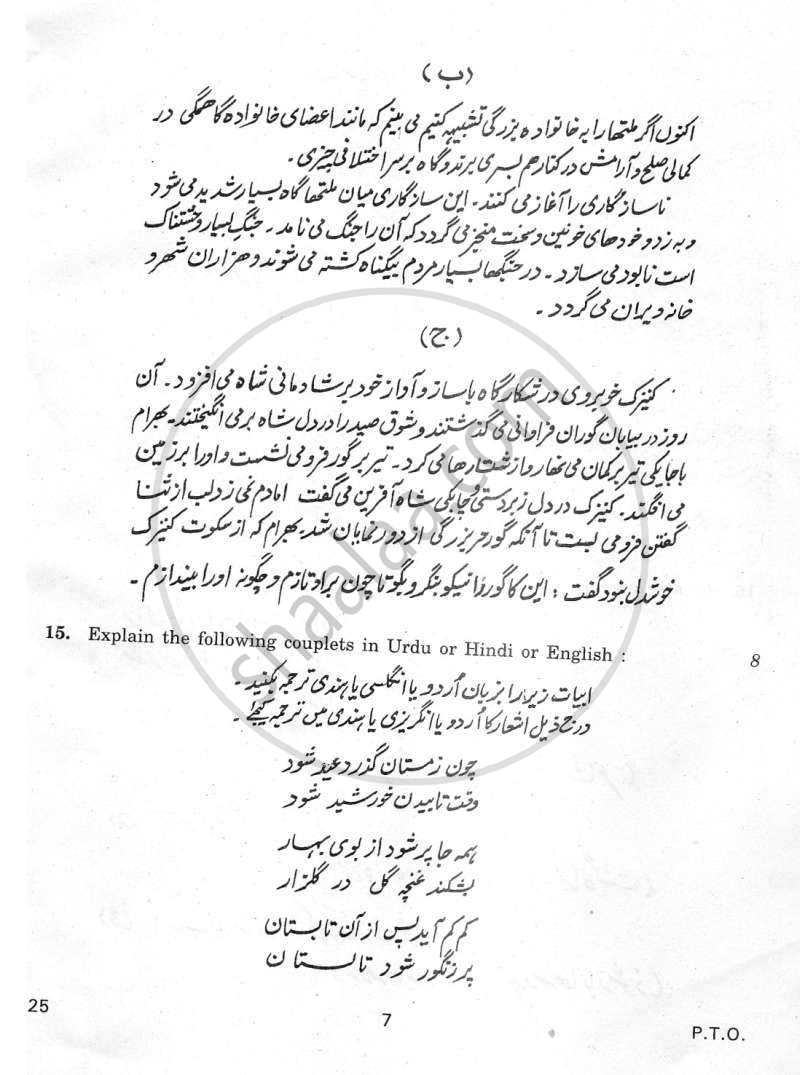 (ب)
اکنوں اگر ملتھا را بہ خانوادہ بزرگی تشبیہہ کنیم می بینم کہ مانند اعضای خانوادہ گاھمگی در
کمالی صلح و آرامش در کنار ھم بسری برند و گاہ بر سر اختلافی چیزی۔
ناسازگاری را آغاز می کنند۔ این سازگاری میان ملتھا گاہ بسیار شدید می شود
و بہ زد و خودھای خونین و سخت منجز می گردد کہ آن را جنگ می نامد۔ جنگ بسیار وحشتناک
است نابود می سازد۔ در جنگھا بسیار مردم بیگناہ کشتہ می شوند و ھزاران شھر و
خانہ ویران می گردد۔
(ج)
کنیزک خوبروی در شکار گاہ با ساز و آواز خود بر شادمانی شاہ می افزود۔ آن
روز در بیابان گوران فراوانی می گذشتند و شوق صید را در دل شاہ بر می انگیختند۔ بھرام
باچابکی تیر بر کمان می نھار و از شتارھا می کرد۔ تیر بر گور فرو می نشست و اورا بر زمین
می افگند۔ کنیزک در دل زبردستی و چابکی شاہ آفرین می گفت امادم نمی زد لب از ثنا
گفتن فرو می بست تا آنکہ گور حریز رگی از دور نمایان شد۔ بھرام کہ از سکوت کنیزک
خوشدل بنود گفت : این کا گور را نیکو بنگر و بگو تا چون براو تازم و چگونہ اورا بیندازم۔
15. Explain the following couplets in Urdu or Hindi or English :
8
ابیات زیر را بزبان اُردو یا انگلسی یا ہندی ترجمہ بکنید۔
درج ذیل اشعار کا اُردو یا انگریزی یا ہندی میں ترجمہ کیجئے۔
چون زمستان گذرد عید شود
وقت تابیدن خورشید شود
ہمہ جا پر شود از بوی بہار
بشکند غنچہ گل در گلزار
کم کم آید پس از آن تابستان
پر زنگور شود تالستان
25
7
P.T.O.
shaalaa.com